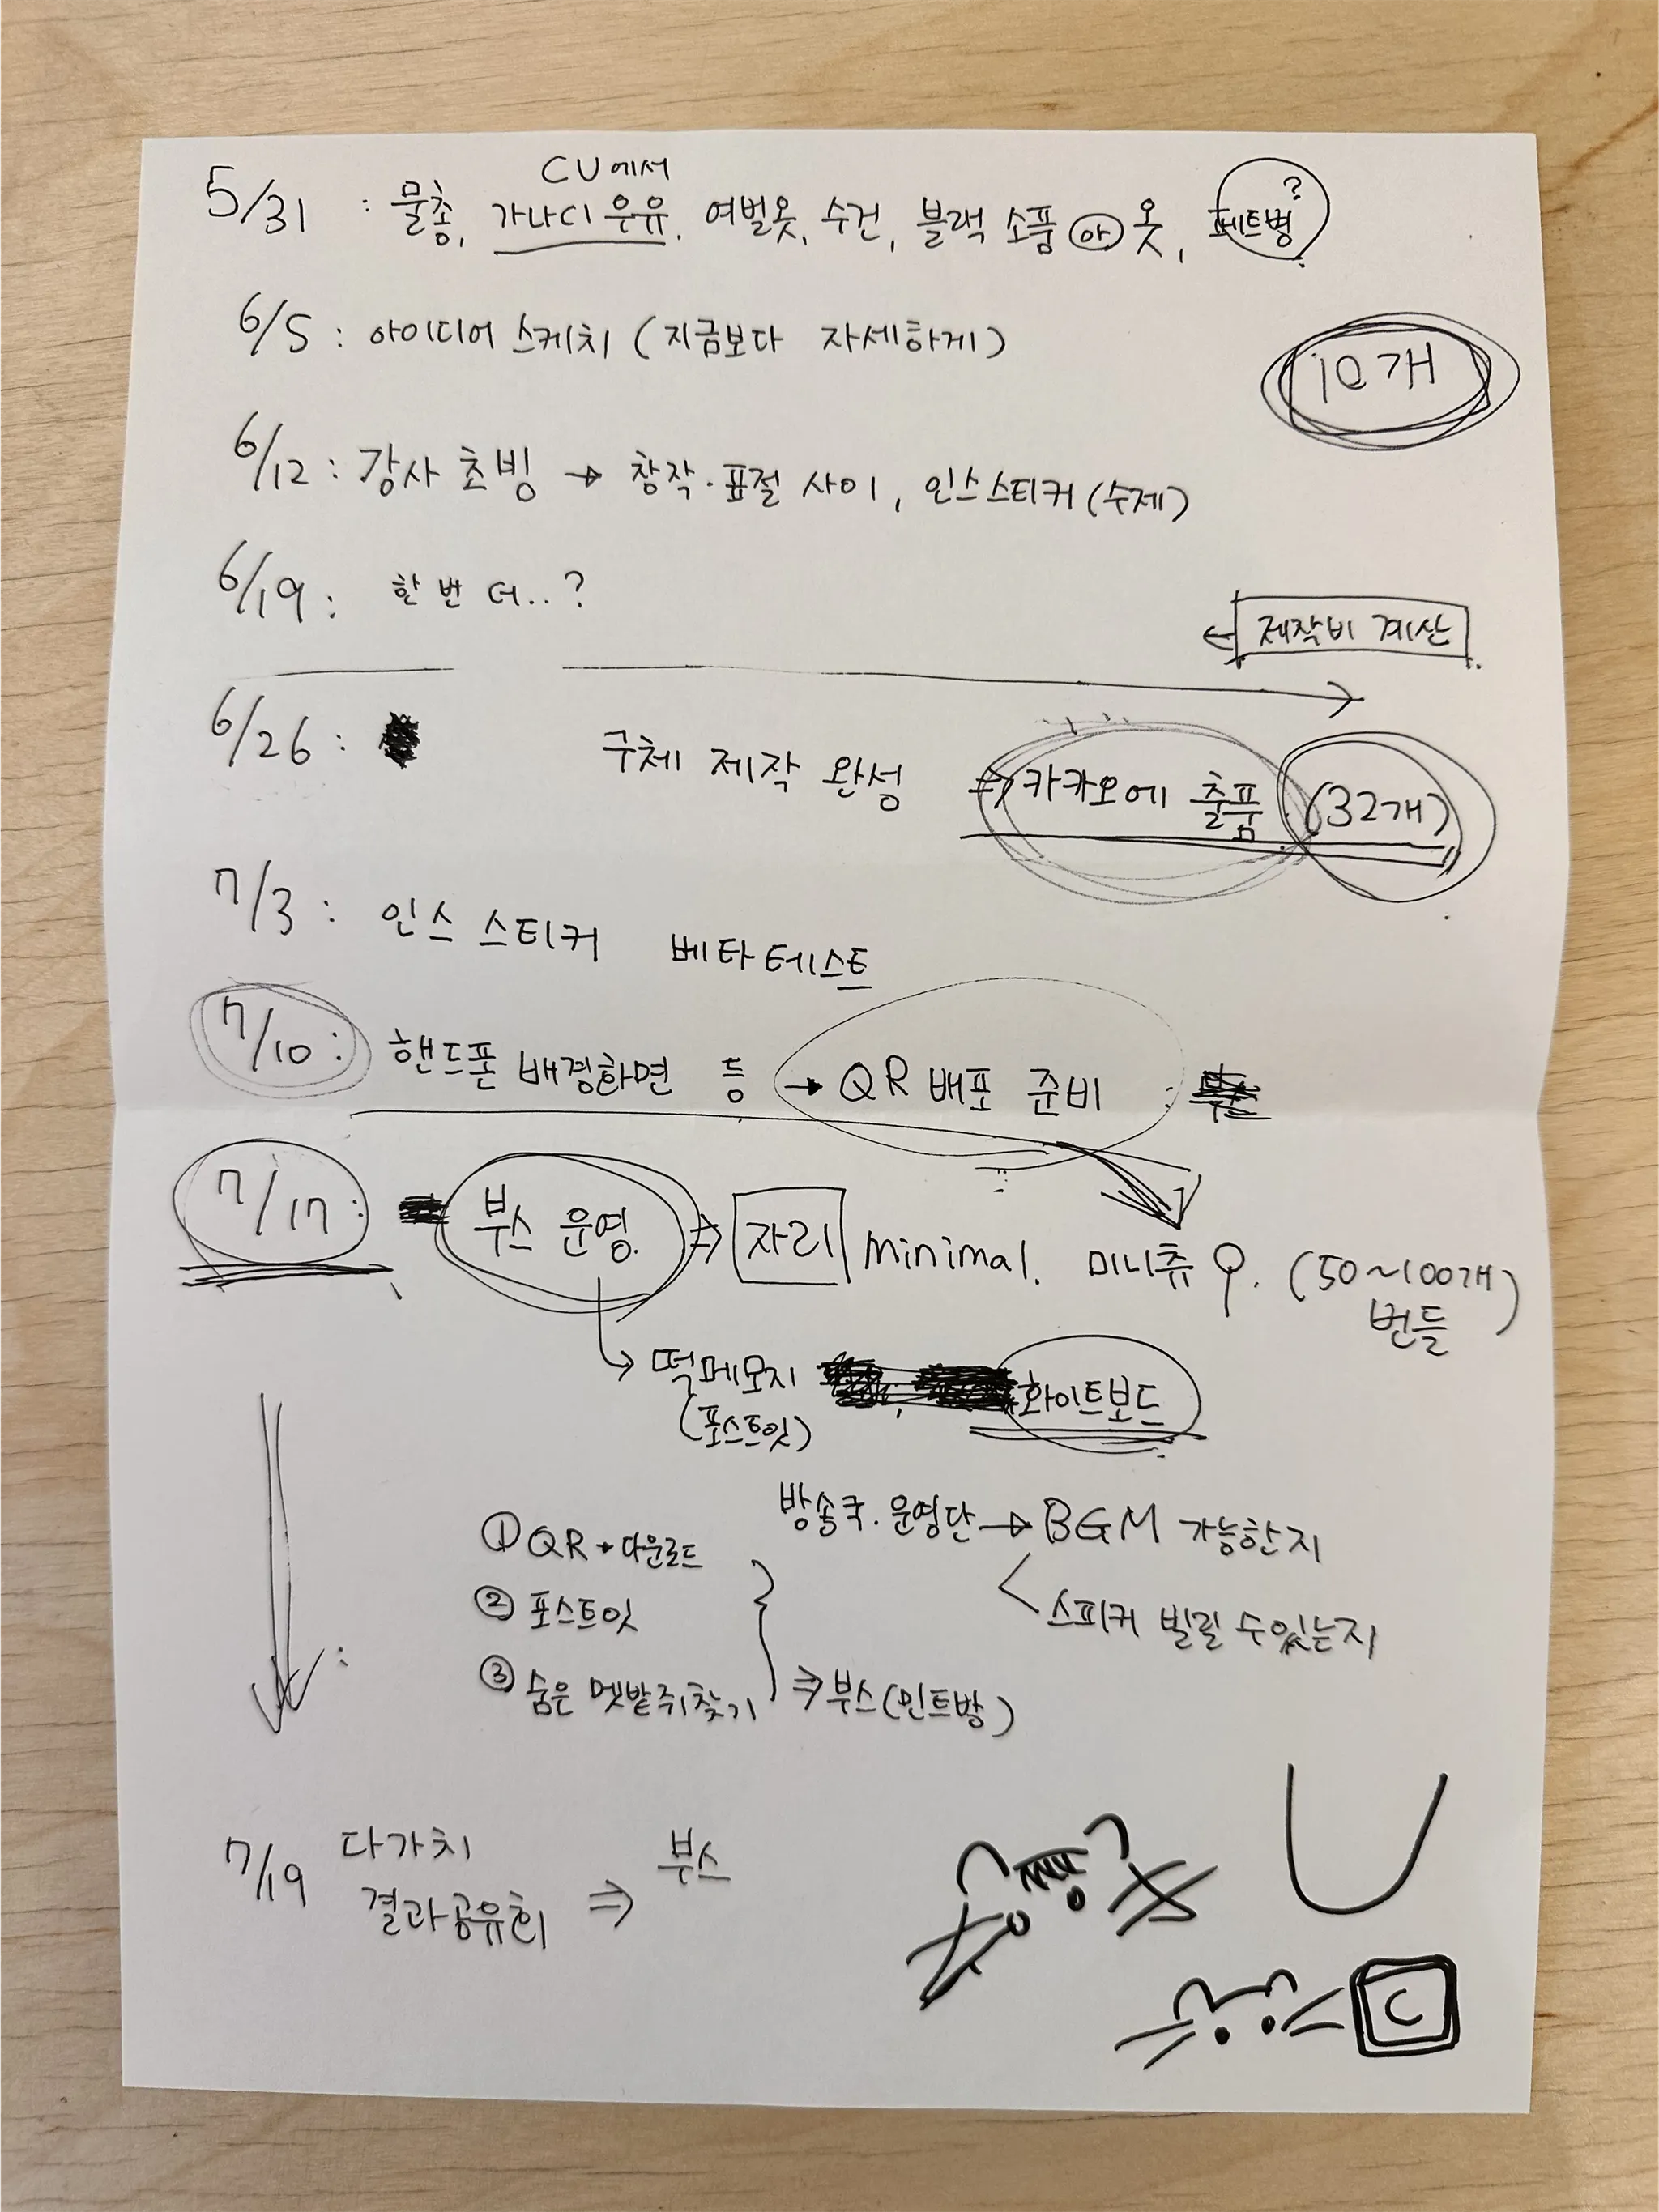 CU에서
5/31 : 물총, 가나디 우유, 여벌옷, 수건, 블랙 소품 or 옷, 페트병?
6/5 : 아이디어 스케치 (지금보다 자세하게)
10개
6/12 : 강사 초빙 → 창작·표절 사이, 인스스티커(수제)
6/19 : 한 번 더..?
← 제작비 계산
6/26 : 구체 제작 완성 ⇒ 카카오에 출품 (32개)
7/3 : 인스 스티커 베타테스트
7/10 : 핸드폰 배경화면 등 → QR 배포 준비
7/17 : 부스 운영. ⇒ 자리 minimal. 미니츄 (50~100개)
번들
떡메모지 화이트보드
(포스트잇)
방송국·운영단 → BGM 가능한지
① QR → 다운로드
스피커 빌릴 수 있는지
② 포스트잇
③ 숨은 멧밭쥐 찾기 ⇒ 부스(민트방)
7/19 다가치 ⇒ 부스
결과공유회
C